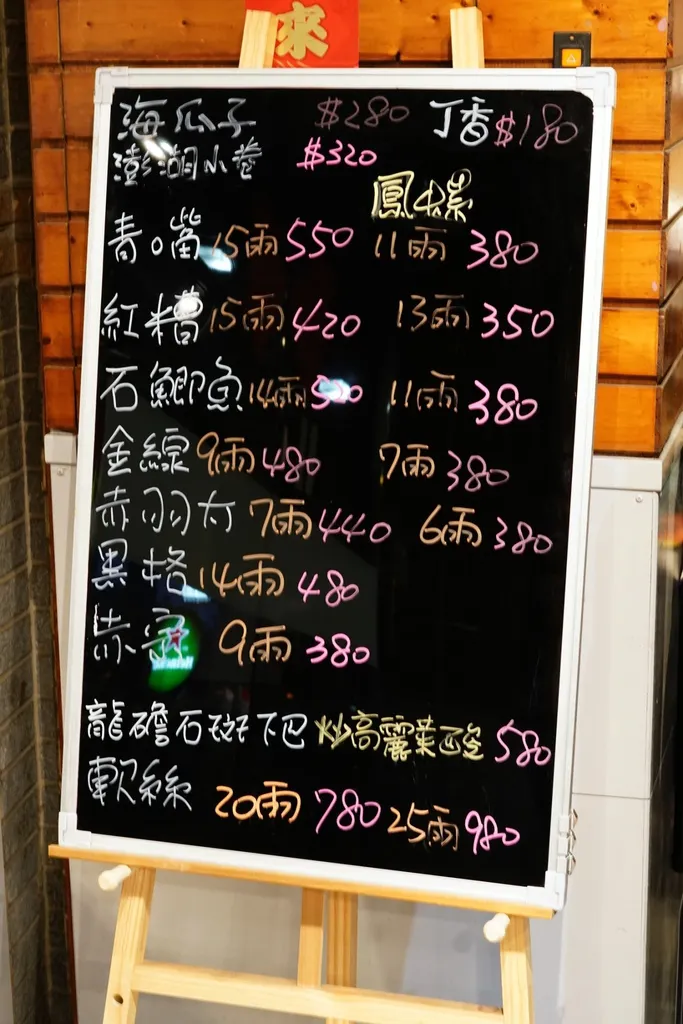 來
海瓜子 $280 丁香 $180
澎湖小卷 $320
鳳螺
青嘴 15兩 550 11兩 380
紅糟 15兩 420 13兩 350
石鯽魚 14兩 11兩 380
金線 9兩 480 7兩 380
赤羽太 7兩 440 6兩 380
黑格 14兩 480
9兩 380
龍膽石斑下巴 炒高麗菜酸 580
軟絲 20兩 780 25兩 980